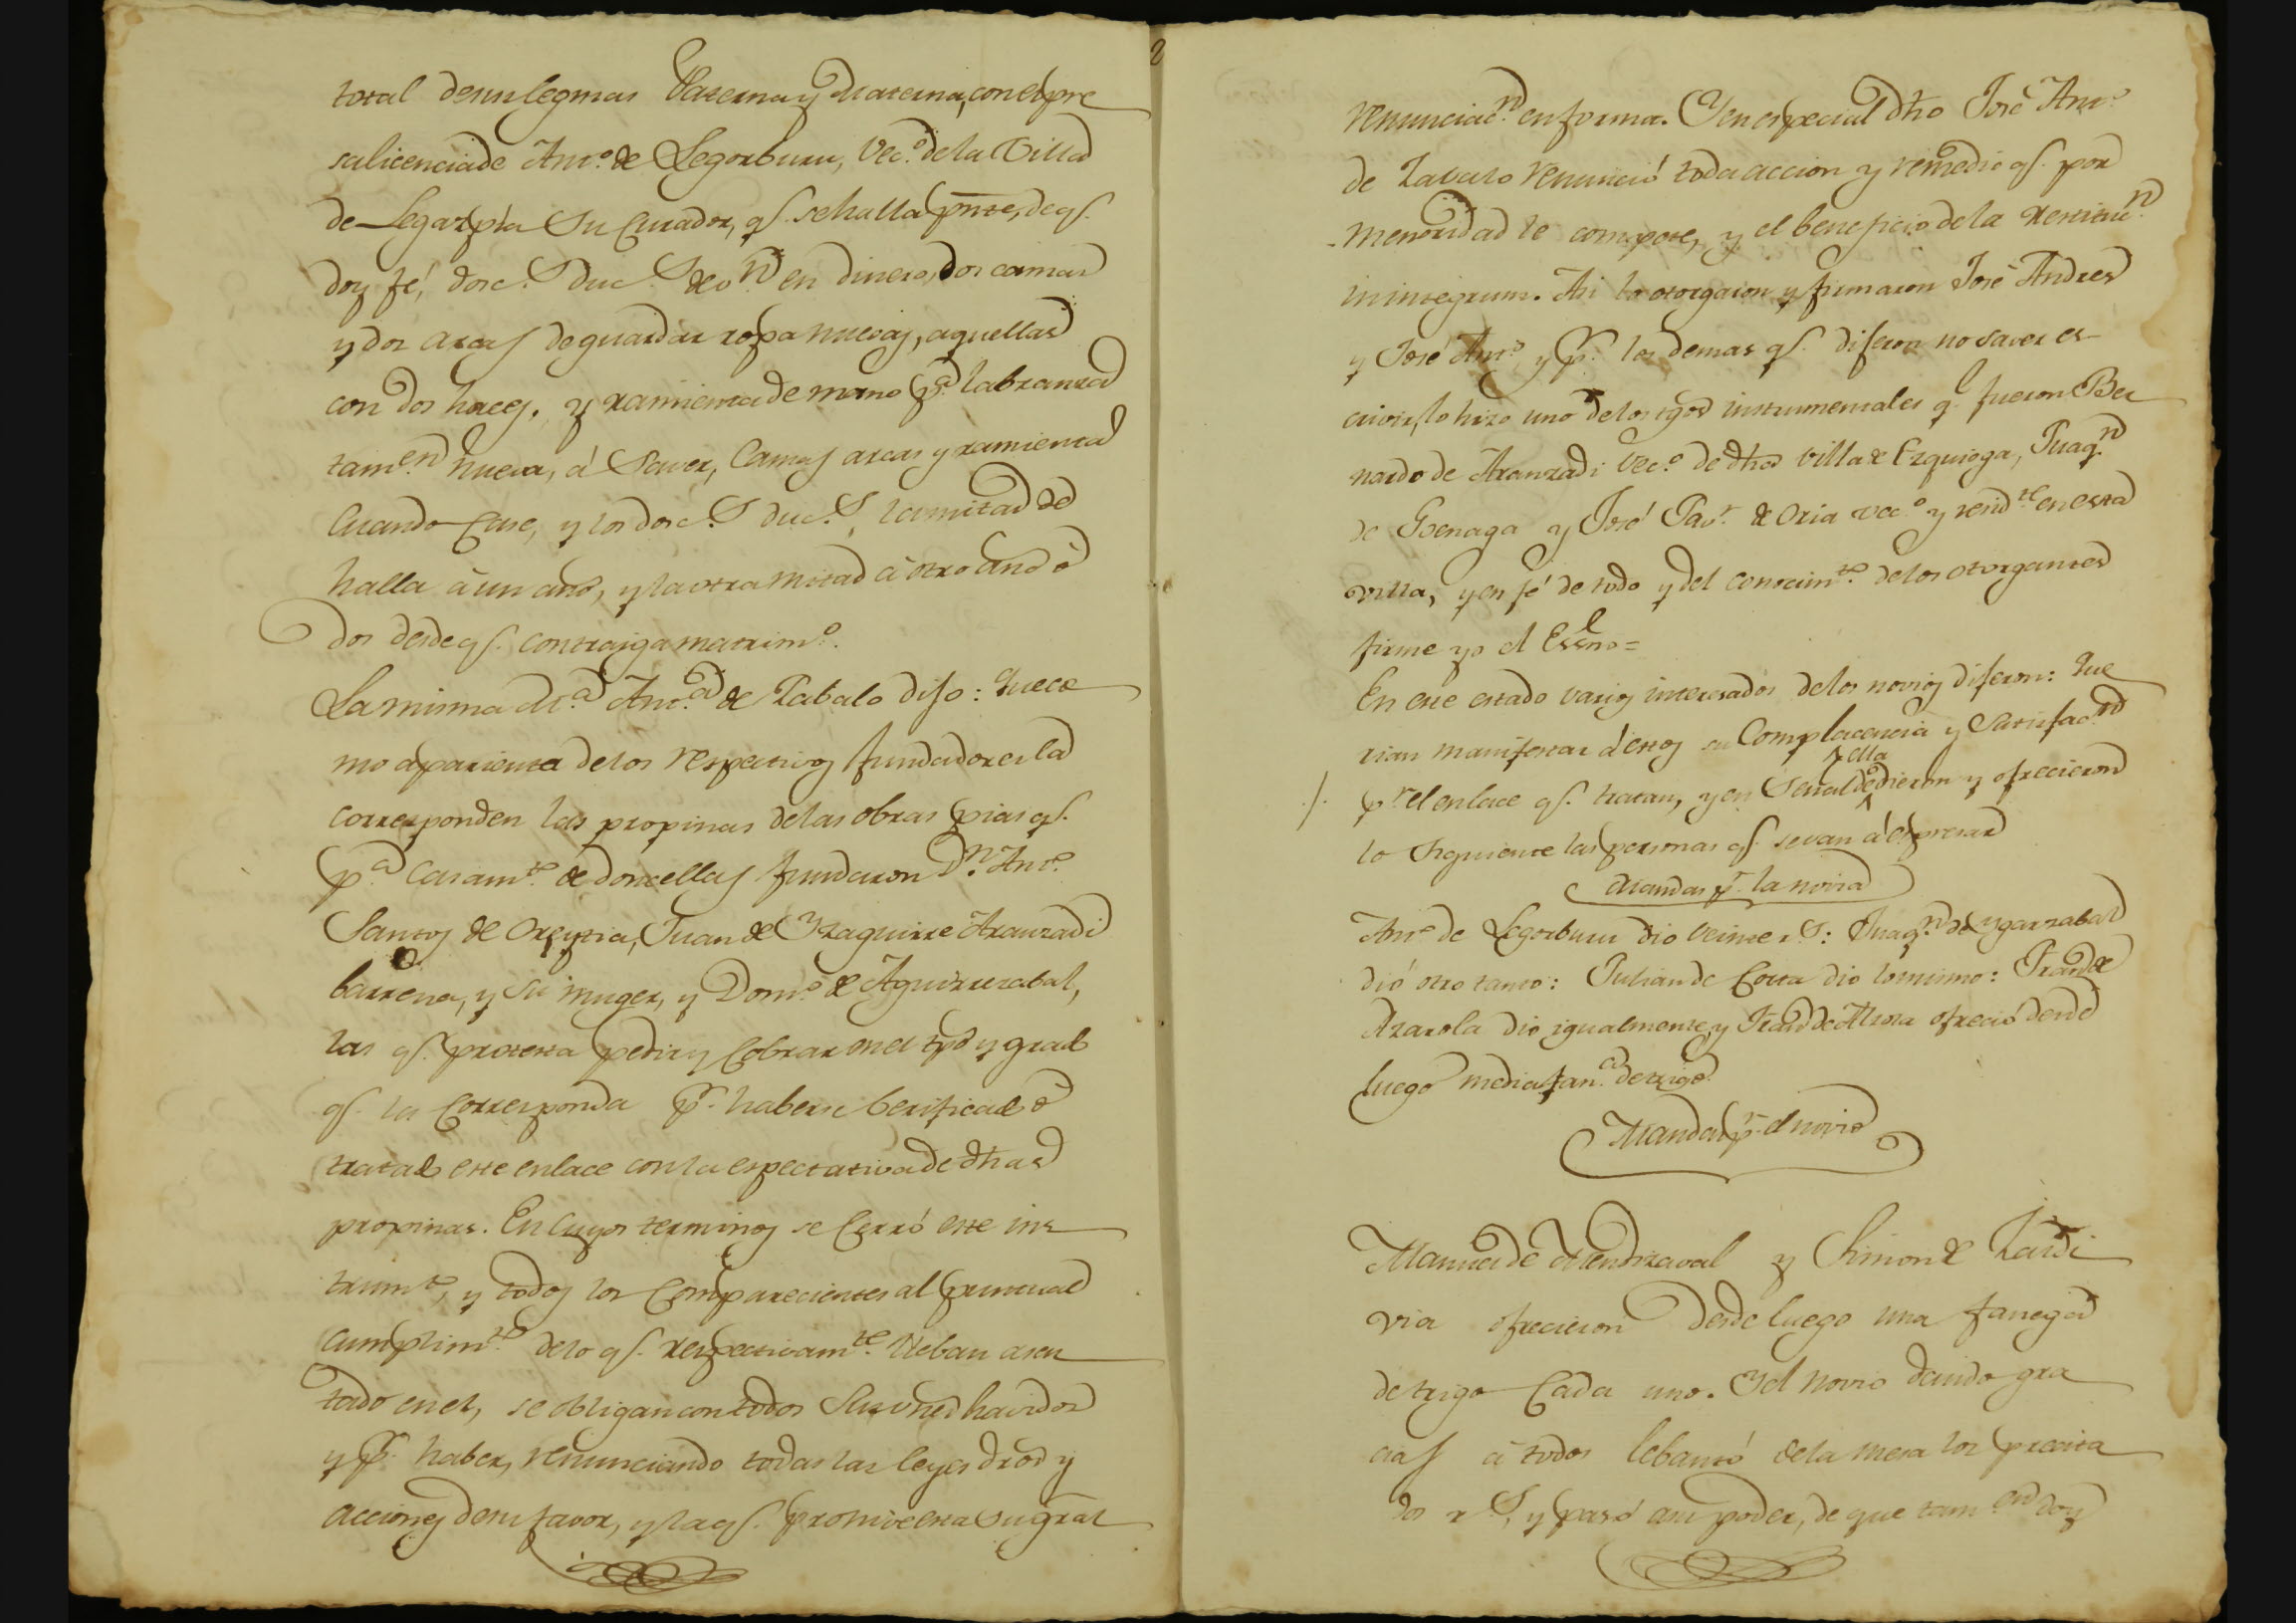 total desus legmas Paterna y Materna, con expre
sa licencia de Ant.º de Legorburu, Vec.º de la Villa
de Legazpia Su Curador, q.e se halla pnte, de q.e
doy fé, dosc.s duc.s de v.n en dinero, dos camas
y dos arcas de guardar ropa nuevas, aquellas
con dos haces, y ramienta de mano p.a labranza
tam.en nueva, á Saver, Camas arcas y ramienta
Cuando Case, y los dosc.s duc.s, la mitad de
halla à un año, y la otra mitad à otro año ò
dos desde q.e contrayga matrim.º
La misma M.a Ant.a de Zabalo dijo: Que co
mo a parienta de los respectivos fundadores la
corresponden las propinas de las obras pias q.e
p.a Casam.to de doncellas fundaron D.n Ant.º
Santos de Oreytia, Juan de Yzaguirre Aranzadi
barrena, y su muger, y Dom.º de Aguirrezabal,
las q.e protesta pedir y Cobrar en el tpo y grado
q.e las Corresponda p.r haberse berificado ò
tratado este enlace con la espectativa de dhas
propinas. En cuyos terminos se Cerró este ins
trum.to, y todos los Comparecientes al puntual
cumplim.to de lo q.e respectivam.te lleban asen
tado en el, se obligan con todos Sus vnes havidos
y p.r haber, renunciando todas las leyes dros y
acciones de su favor, y la q.e prohive esta su gral
renunciac.n en forma. Y en especial dho José Ant.º
de Zavalo renunció toda accion y remedio q.e por
menoridad le compete, y el beneficio de la restituc.n
in integrum. Asi lo otorgaron y firmaron José Andres
y José Ant.º y p.r los demas q.e dijeron no saver es-
crivir, lo hizo uno de los tgos instrumentales q.e fueron Ber
nardo de Aranzadi Vec.º de dha villa de Ezquioga, Juaq.n
de Goenaga y José Jav.r de Oria vec.º y resid.te en esta
villa, y en fé de todo y del conocim.to de los otorgantes
firme yo el Essno =
En este estado varios interesados de los novios dijeron: Que
rian manifestar á estos su Complacencia y Satisfac.n
p.r el enlace q.e tratan, y en Señal de ella dieron y ofrecieron
lo siguiente las personas q.e se van á espresar
Mandas p.r la novia
Ant.º de Legorburu dio veinte r.s: Juaq.n de Ygarzabal
dió otro tanto: Julian de Corta dio lo mismo: Fran.co de
Azarola dio igualmente, y Fran.co de Alzola ofreció desde
luego media fan.a de trigo
Mandas p.r el novio
Manuel de Mendizaval y Simon de Zaldi
via ofrecieron desde luego una fanega
de trigo Cada uno. Y el novio dando gra
cias à todos lebantó de la mesa los precita
dos r.s, y pasó a su poder, de que tam.en doy